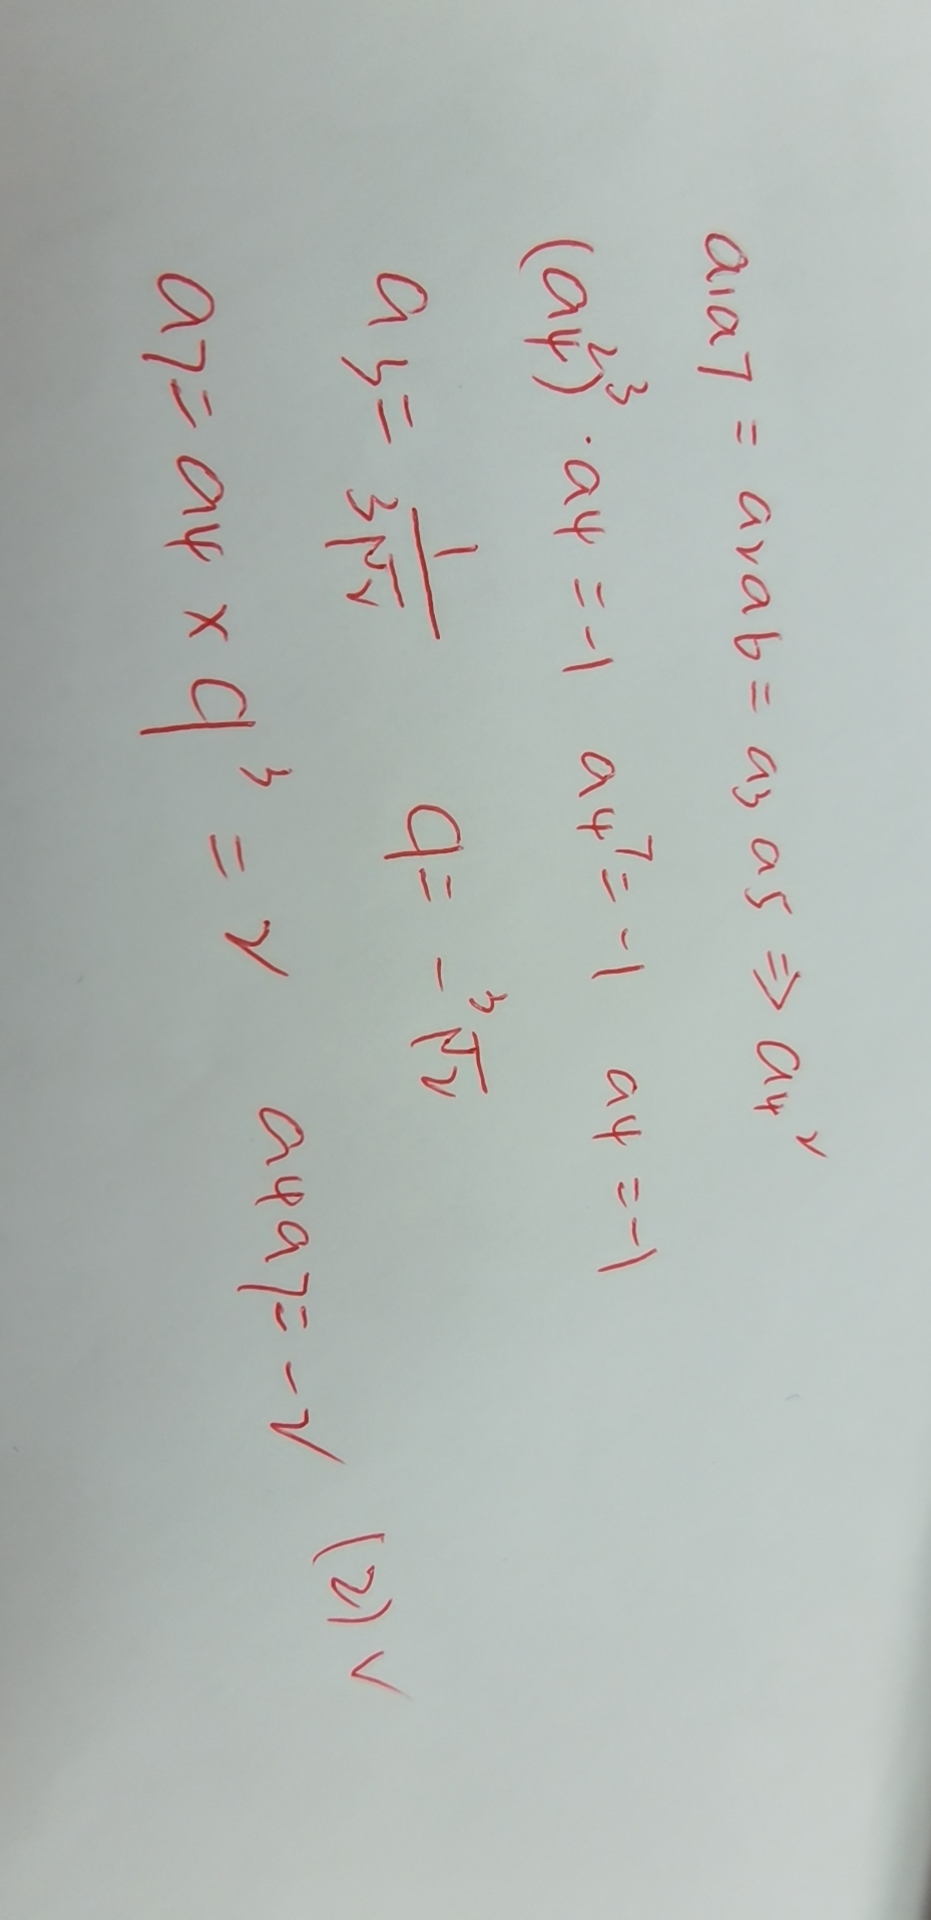 a1a7 = a2a6 = a3a5 ⇒ a4²
(a4²)³·a4 = -1 a4⁷ = -1 a4 = -1
a3 = 1/³√2 q = -³√2
a7 = a4 × q³ = 2 a4a7 = -2 (2) ✓